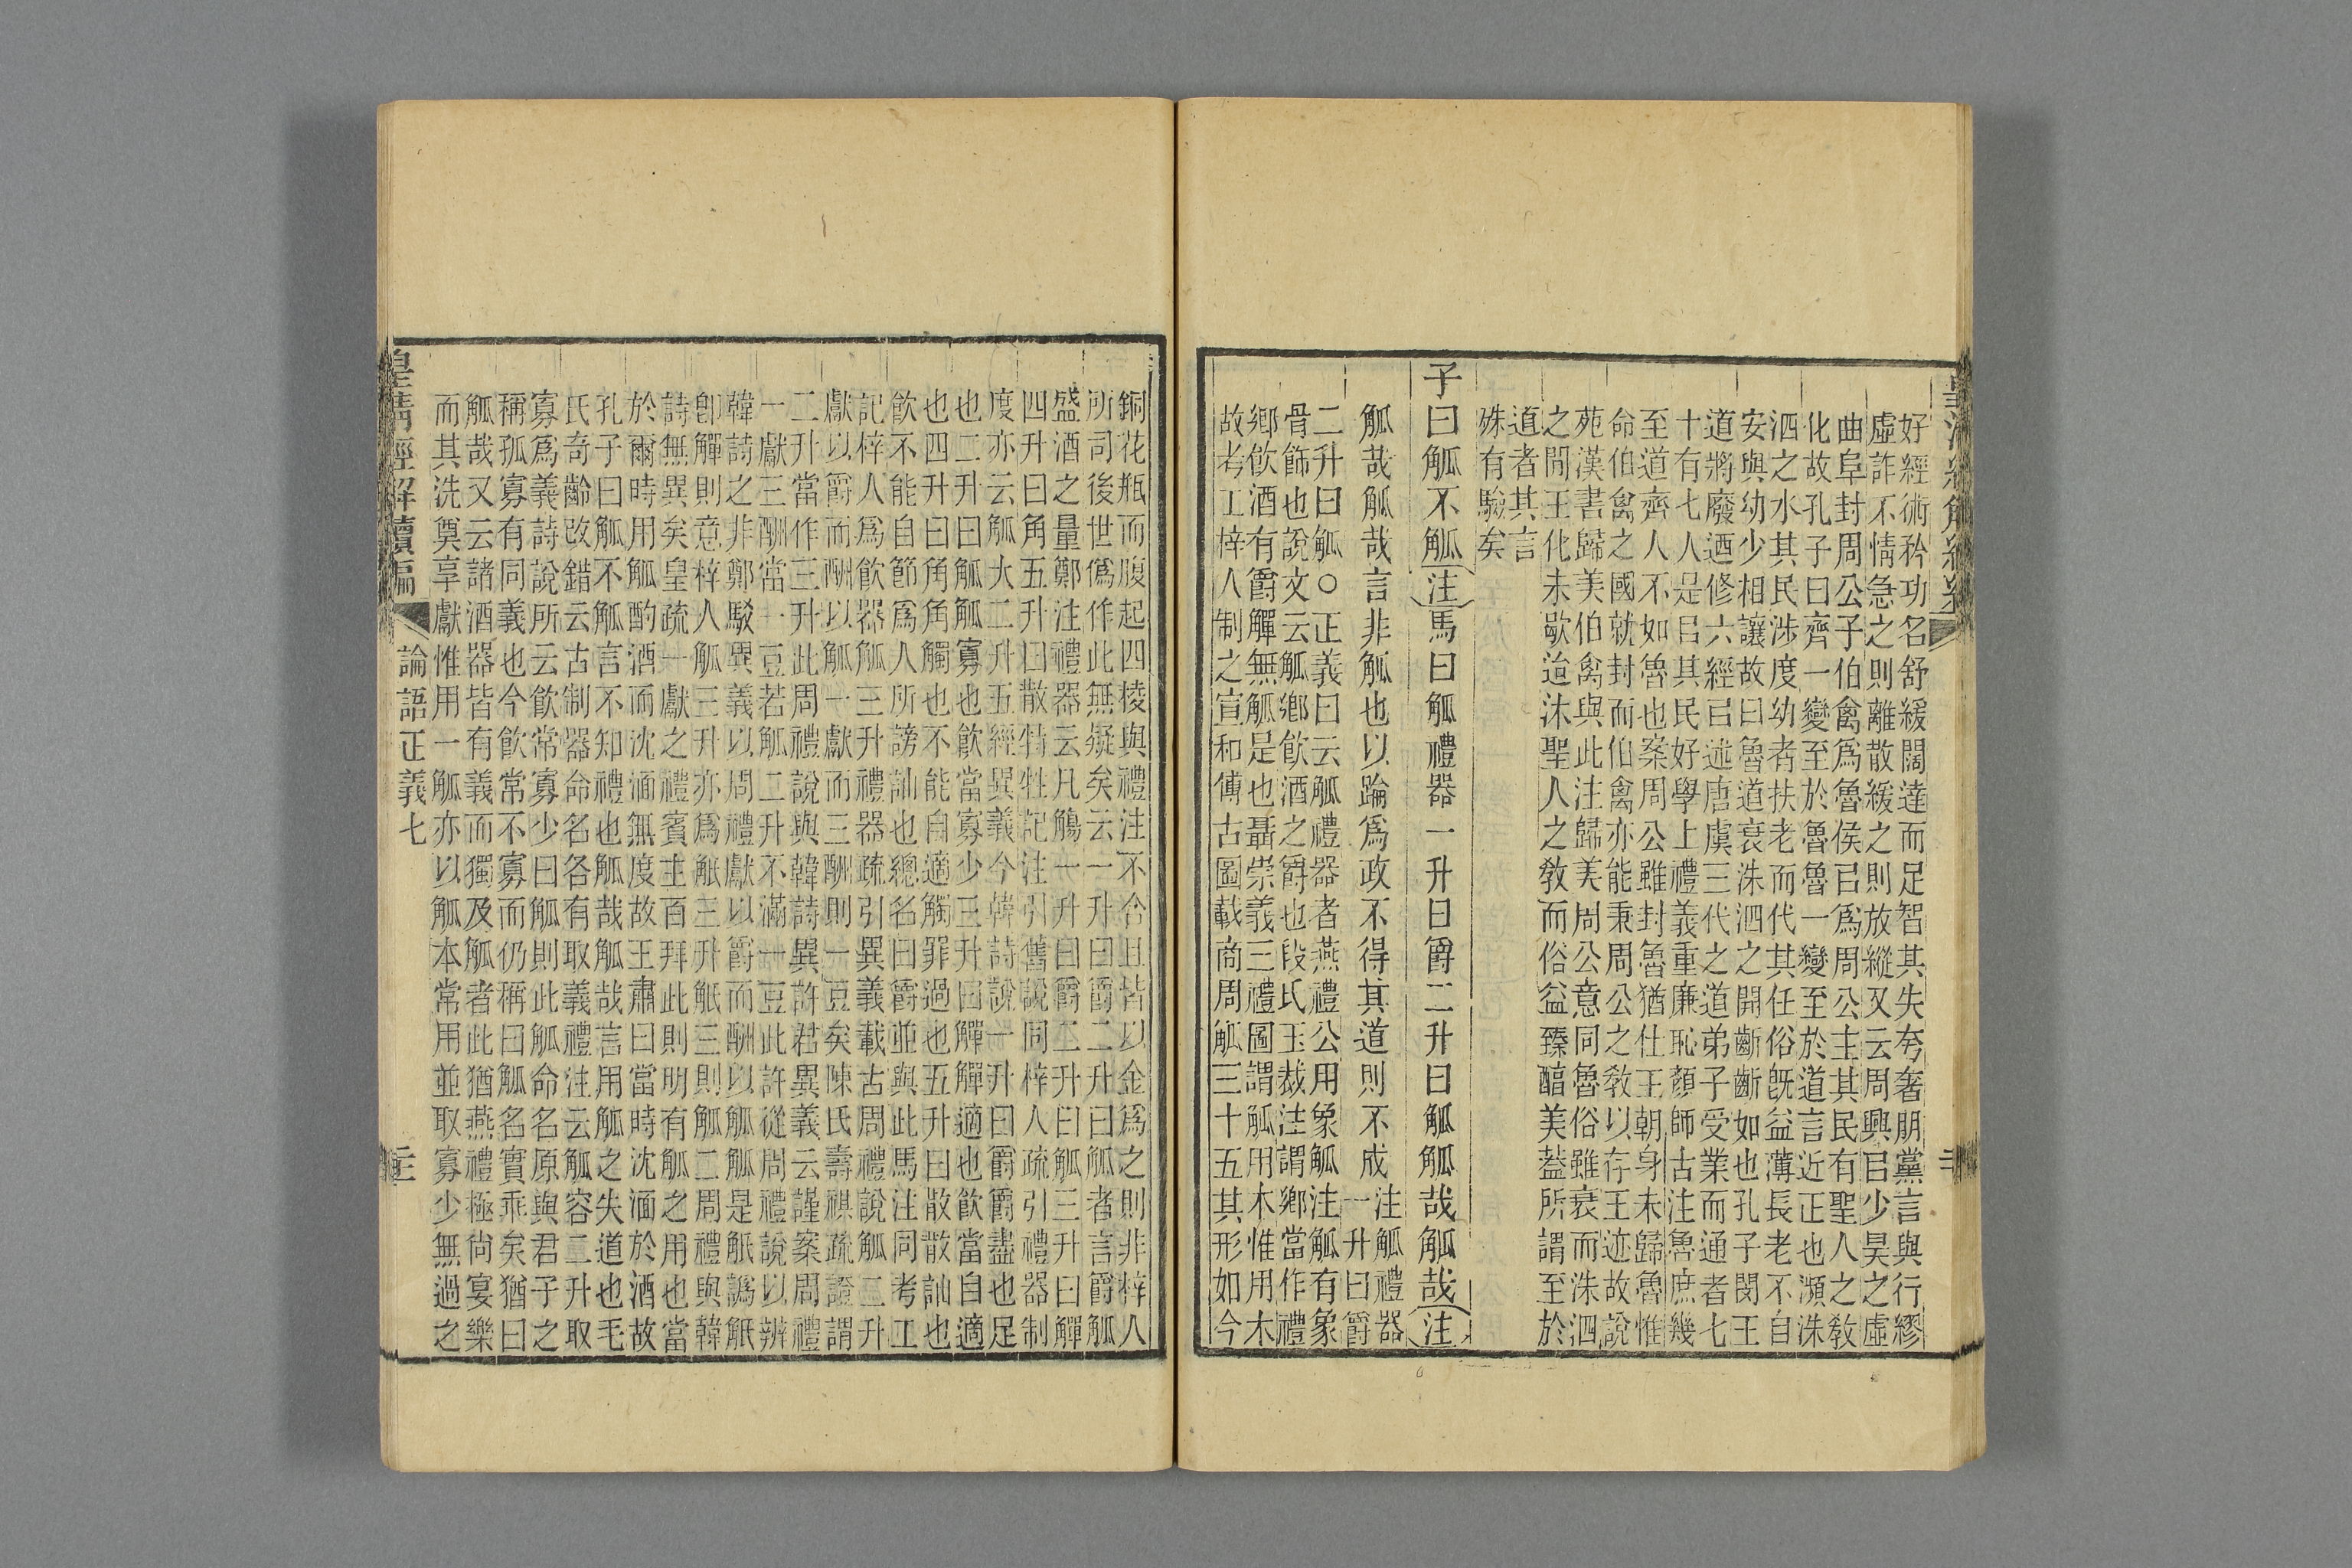 好經術矜功名舒緩闊達而足智其失夸奢朋黨言與行繆
虛詐不情急之則離散緩之則放縱又云周興㠯少昊之虛
曲阜封周公子伯禽爲魯侯㠯爲周公主其民有聖人之敎
化故孔子曰齊一變至於魯魯一變至於道言近正也瀕洙
泗之水其民涉度幼者扶老而代其任俗旣益薄長老不自
安與幼少相讓故曰魯道衰洙泗之閒齗齗如也孔子閔王
道將廢迺修六經㠯述唐虞三代之道弟子受業而通者七
十有七人是㠯其民好學上禮義重廉恥顏師古注魯庶幾
至道齊人不如魯也案周公雖封魯猶仕王朝身未歸魯惟
命伯禽之國就封而伯禽亦能秉周公之敎以存王迹故說
苑漢書歸美伯禽與此注歸美周公意同魯俗雖衰而洙泗
之閒王化未歇迨沐聖人之敎而俗益臻醕美葢所謂至於
道者其言
殊有驗矣
子曰觚不觚注馬曰觚禮器一升曰爵二升曰觚觚哉觚哉注
觚哉觚哉言非觚也以踚爲政不得其道則不成
注觚禮器
一升曰爵
二升曰觚○正義曰云觚禮器者燕禮公用象觚注觚有象
骨飾也說文云觚鄉飲酒之爵也段氏玉裁注謂鄉當作禮
鄉飲酒有爵觶無觚是也聶崇義三禮圖謂觚用木惟用木
故考工梓人制之宣和傅古圖載商周觚三十五其形如今
銅花瓶而腹起四棱與禮注不合且皆以金爲之則非梓人
所司後世僞作此無疑矣云一升曰爵二升曰觚者言爵觚
盛酒之量鄭注禮器云凡觴一升曰爵二升曰觚三升曰觶
四升曰角五升曰散特牲記注引舊說同梓人疏引禮器制
度亦云觚大二升五經異義今韓詩說一升曰爵爵盡也足
也二升曰觚觚寡也飲當寡少三升曰觶觶適也飲當自適
也四升曰角角觸也不能自適觸罪過也五升曰散散訕也
飲不能自節爲人所謗訕也總名曰爵並與此馬注同考工
記梓人爲飲器觚三升禮器疏引異義載古周禮說觚二升
獻以爵而酬以觚一獻而三酬則一豆矣陳氏壽祺疏證謂
二升當作三升此周禮說與韓詩異許君異義云謹案周禮
一獻三酬當一豆若觚二升不滿一豆此許從周禮說以辨
韓詩之非鄭駁異義以周禮獻以爵而酬以觚觚是觗譌觗
卽觶則意梓人觚三升亦爲觗三升觗三則觚二周禮與韓
詩無異矣皇疏一獻之禮賓主百拜此則明有觚之用也當
於爾時用觚酌酒而沈湎無度故王肅曰當時沈湎於酒故
孔子曰觚不觚言不知禮也觚哉觚哉言用觚之失道也毛
氏奇齡改錯云古制器命名各有取義禮注云觚容二升取
寡爲義詩說所云飲常寡少曰觚則此觚命名原與君子之
稱孤寡有同義也今飲常不寡而仍稱曰觚名實乖矣猶曰
觚哉又云諸酒器皆有義而獨及觚者此猶燕禮極尙宴樂
而其洗奠享獻惟用一觚亦以觚本常用並取寡少無過之
皇清經解續編 論語正義七